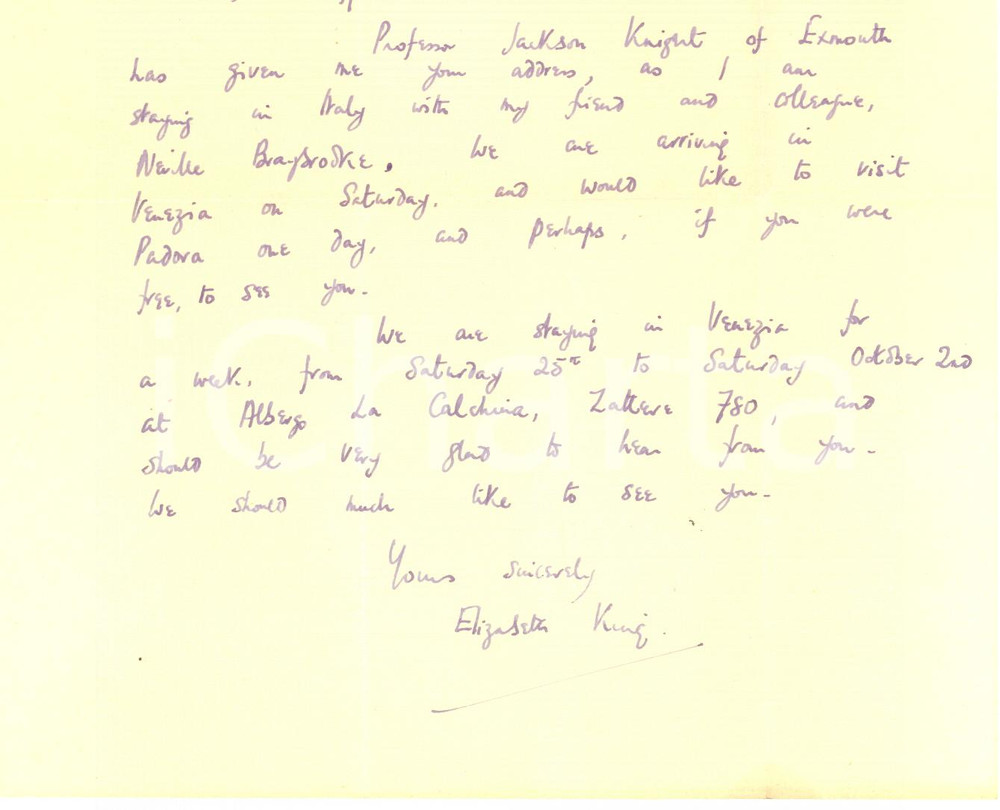 Professor Jackson Knight of Exmouth
has given me your address, as I am
staying in Italy with my friend and colleague,
Neville Braybrooke. We are arriving in
Venezia on Saturday, and would like to visit
Padova one day, and perhaps, if you were
free, to see you.
We are staying in Venezia for
a week, from Saturday 25th to Saturday October 2nd
at Albergo La Calchina, Zattere 780, and
should be very glad to hear from you.
We should much like to see you.
Yours sincerely
Elizabeth King.
iCharta